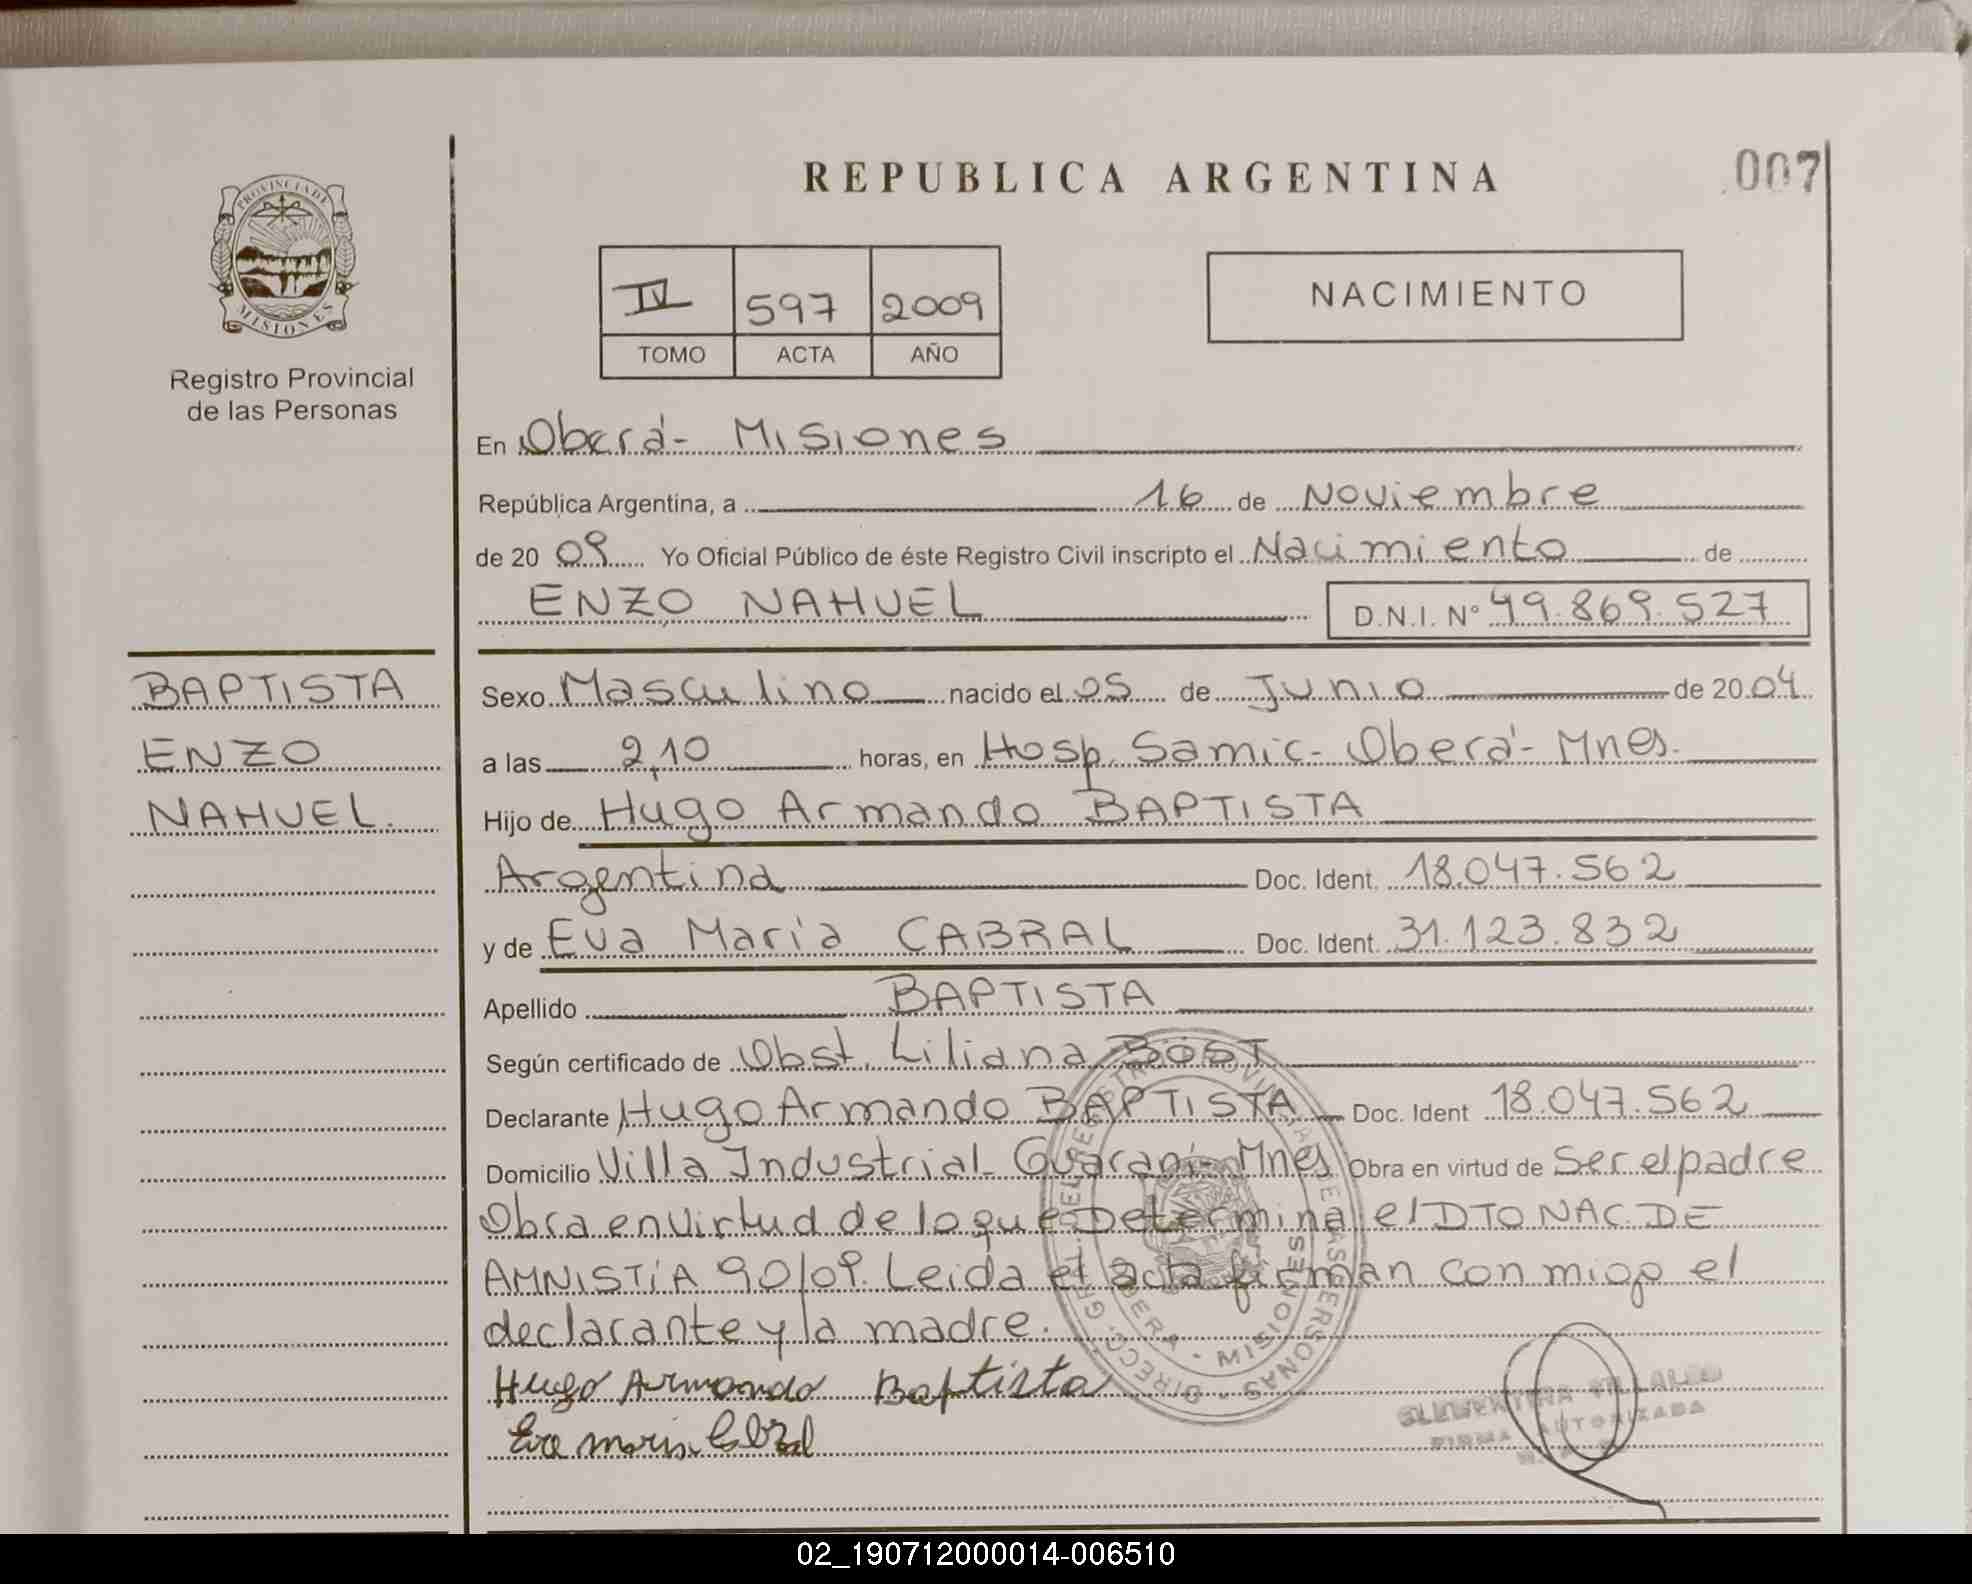 REPUBLICA ARGENTINA
007
PROVINCIA DE
MISIONES
Registro Provincial
de las Personas
IV 597 2009
TOMO ACTA AÑO
NACIMIENTO
En Oberá- Misiones
República Argentina, a 16 de Noviembre
de 20 09 Yo Oficial Público de éste Registro Civil inscripto el Nacimiento de
ENZO NAHUEL D.N.I. Nº 49.869.527
BAPTISTA
ENZO
NAHUEL.
Sexo Masculino nacido el 05 de Junio de 20 04
a las 2,10 horas, en Hosp. Samic- Oberá- Mnes.
Hijo de Hugo Armando BAPTISTA
Argentina Doc. Ident. 18.047.562
y de Eva María CABRAL Doc. Ident. 31.123.832
Apellido BAPTISTA
Según certificado de Obst. Liliana BÖST
Declarante Hugo Armando BAPTISTA Doc. Ident 18.047.562
Domicilio Villa Industrial- Guaraní- Mnes Obra en virtud de Ser el padre
Obra en virtud de lo que Determina el DTO NAC. DE
AMNISTÍA 90/09. Leida el acta firman con migo el
declarante y la madre.
Hugo Armando Baptista
Eva maria Cabral
OBERA - MISIONES
FIRMA AUTORIZADA
02_190712000014-006510